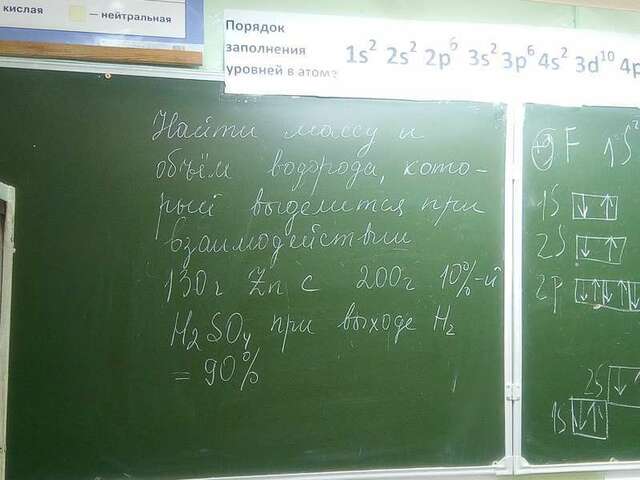 кислая — нейтральная
Порядок
заполнения
уровней в атоме
1s² 2s² 2p⁶ 3s² 3p⁶ 4s² 3d¹⁰ 4p
Найти массу и
объём водорода, кото-
рый выделится при
взаимодействии
130г Zn с 200г 10%-й
H₂SO₄ при выходе H₂
= 90%
F 1S²
1S
2S
2p
2S
1S